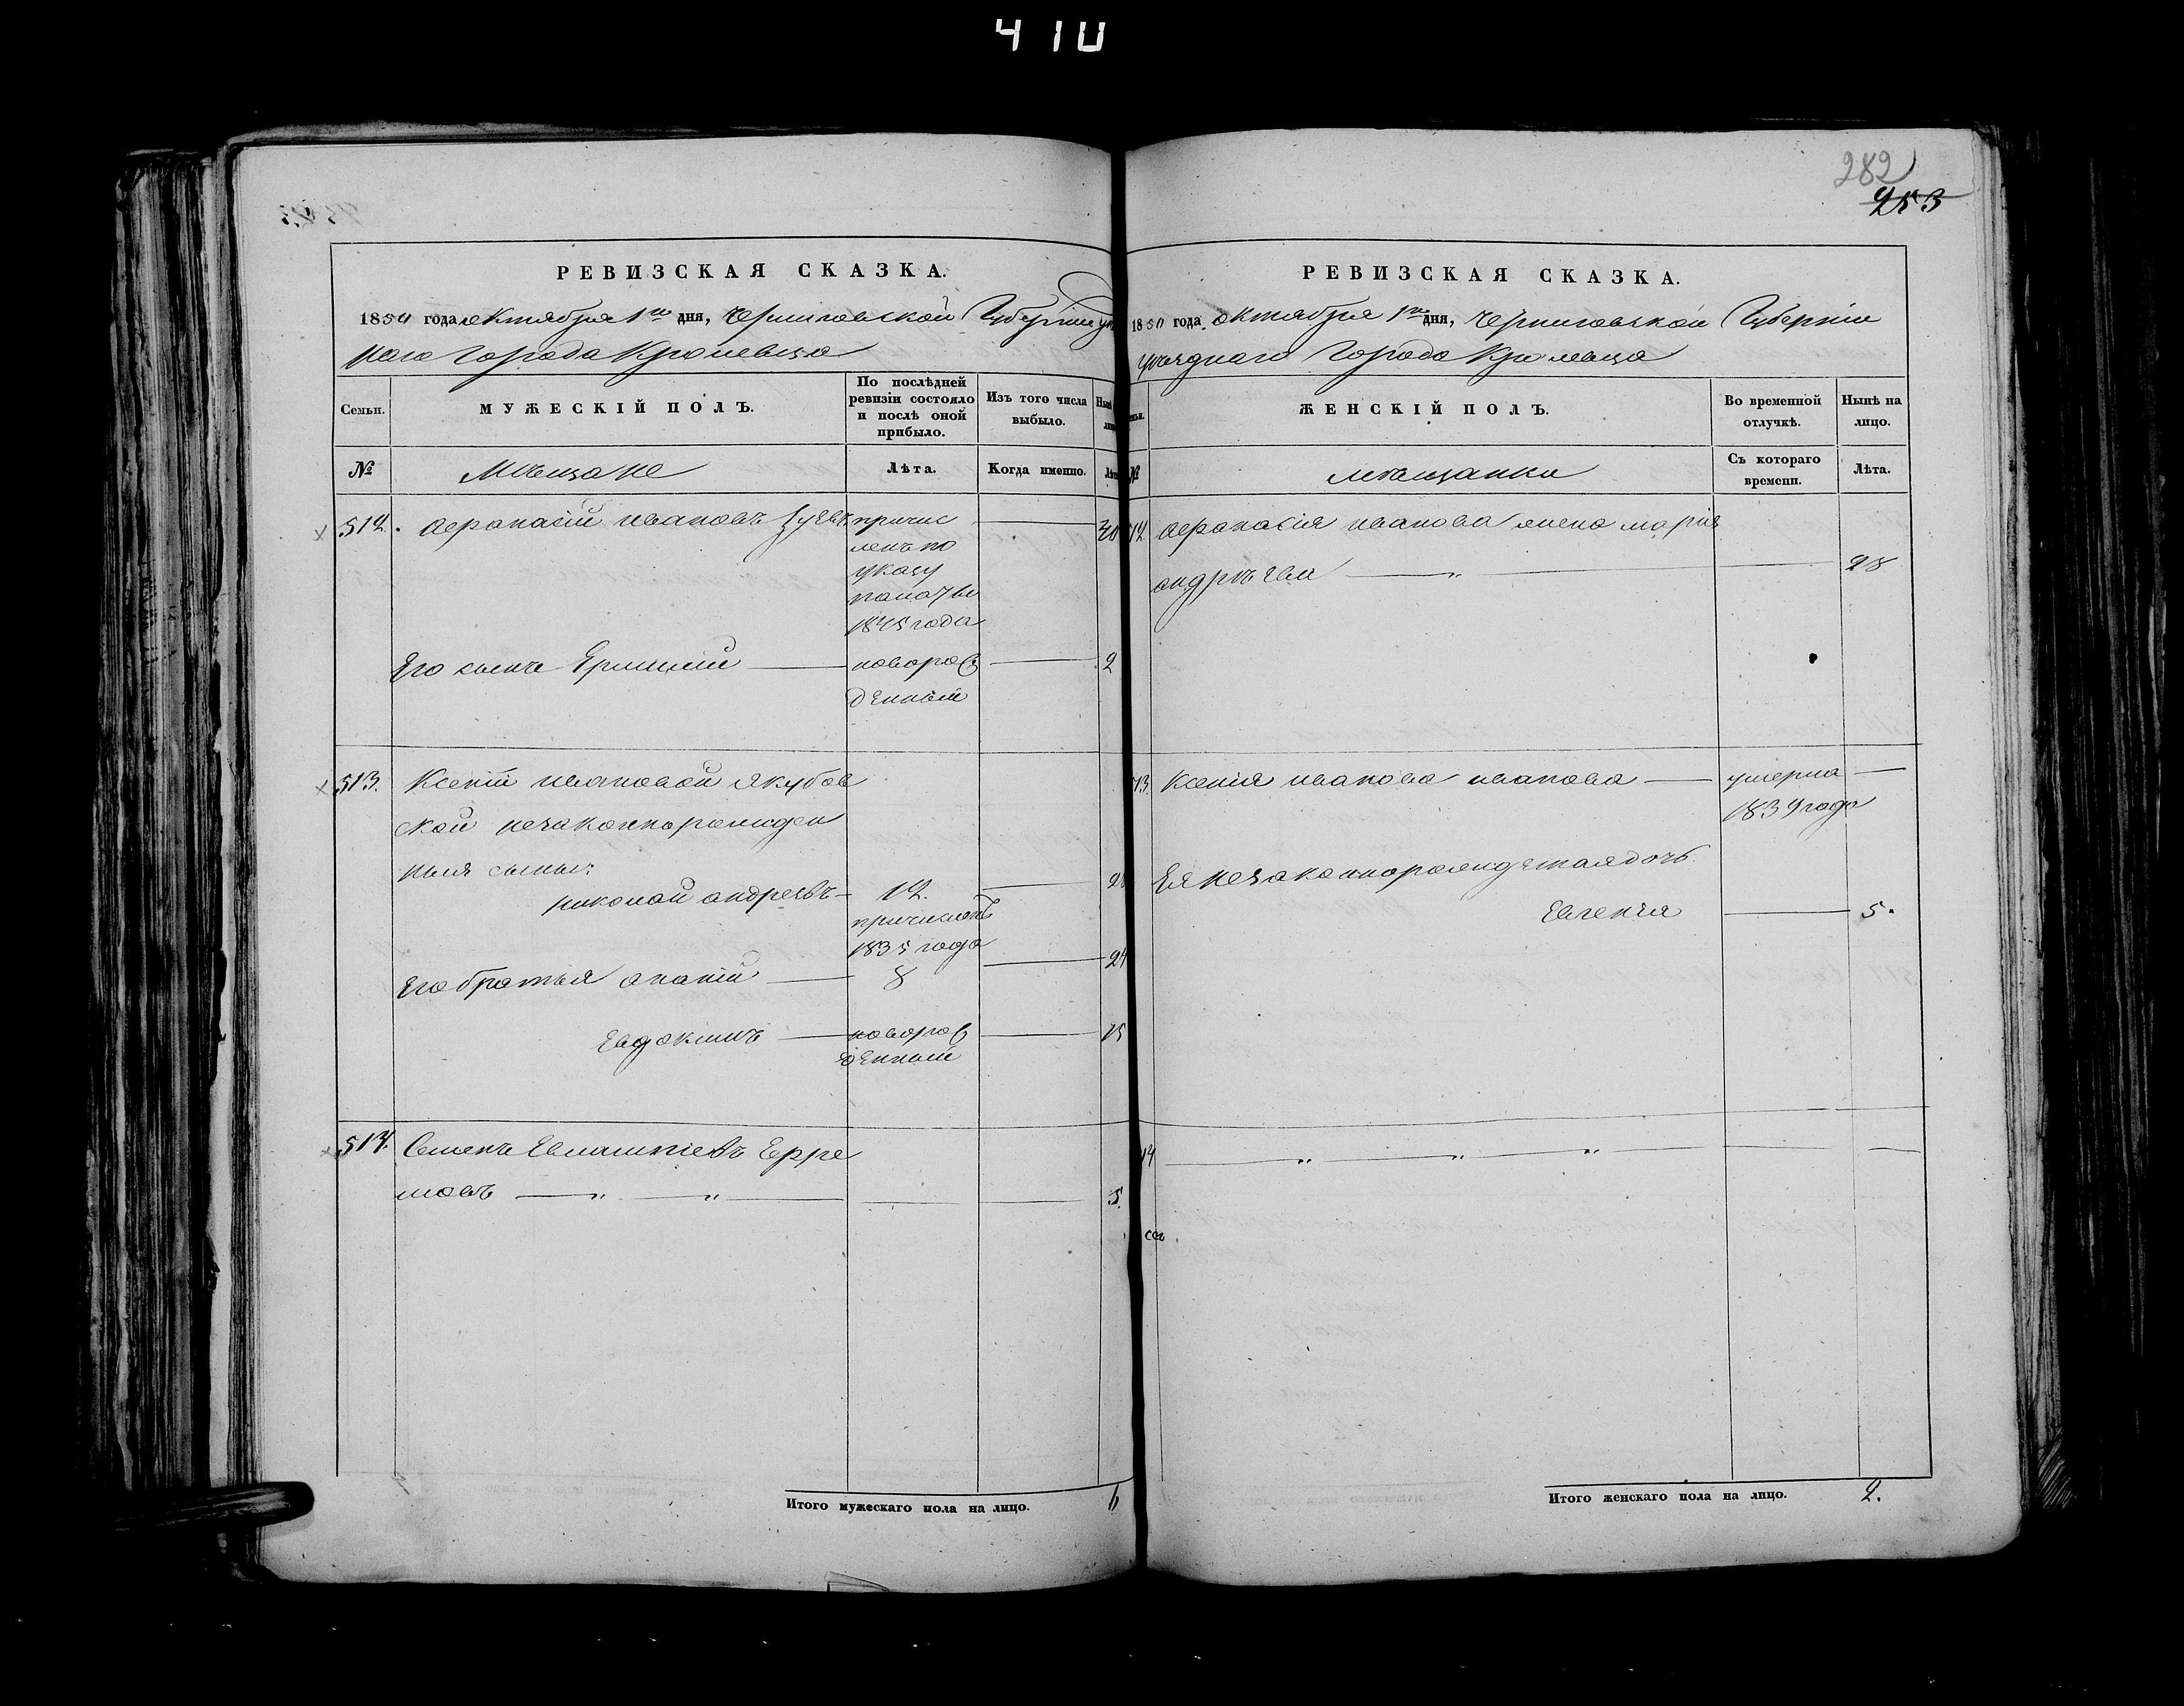 410
РЕВИЗСКАЯ СКАЗКА.
1850 года октября 1го дня, Черниговской Губерніи
наго Города Кролевца
Семьи.
МУЖЕСКІЙ ПОЛЪ.
По послѣдней ревизіи состояло и послѣ оной прибыло.
Изъ того числа выбыло.
№
Мѣщане
Лѣта.
Когда именно.
512. Афанасій Ивановъ Зуевъ
причис
ленъ по
указу
палаты
1845 года
Его сынъ
новорож
денный
2
513. Ксеніи Ивановой Якубов
ской незаконнорожден
ныя сыны:
Николай Андреевъ 12.
причислен
1835 года
Его братья Ананій 8 24
Евдокимъ новорож 15
денный
514. Семенъ Ефре
мовъ — „ — „ — 5.
Итого мужескаго пола на лицо. 6
282
253
РЕВИЗСКАЯ СКАЗКА.
1850 года октября 1го дня, Черниговской Губерніи
уѣзднаго Города Кролевца
ЖЕНСКІЙ ПОЛЪ.
Во временной отлучкѣ.
Нынѣ на лицо.
№
мѣщанки
Съ котораго времени.
Лѣта.
12 Афанасія Иванова жена Марія
Андрѣева — „ — 28
13. Ксенія Иванова Иванова — умерла —
1839 года
Ея незаконнорожденная дочь
Евгенія — 5.
14 — „ — „ — „ —
Итого женскаго пола на лицо. 2.